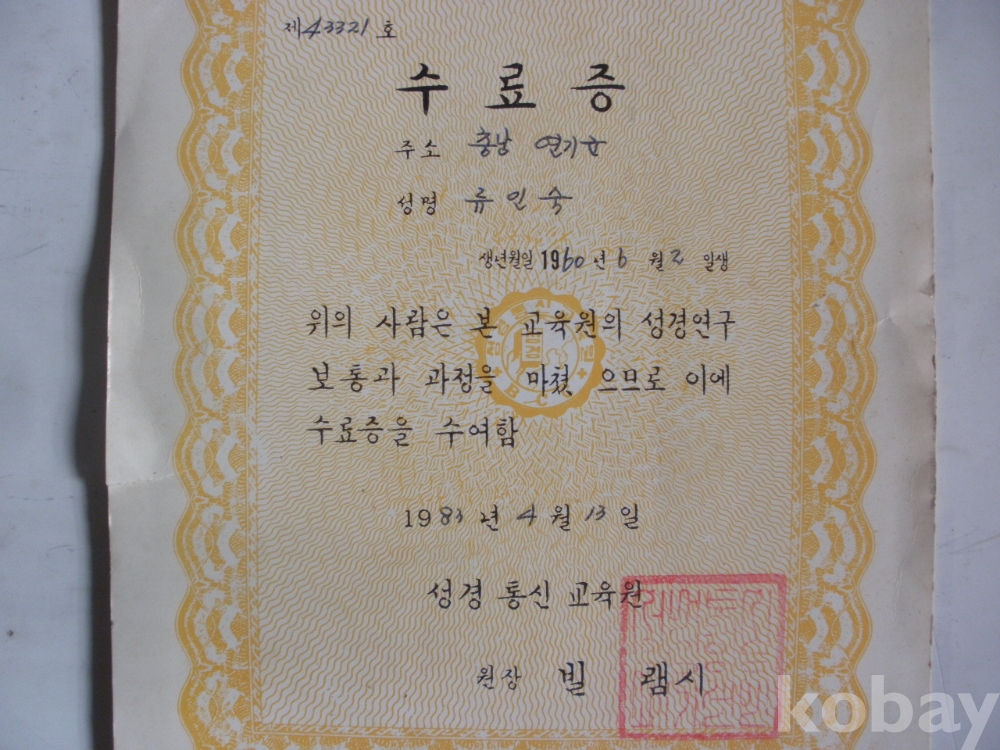 제43321호
수료증
주소 충남 연기군
성명 류인숙
생년월일 1960년 6월 2일생
위의 사람은 본 교육원의 성경연구
보통과 과정을 마쳤으므로 이에
수료증을 수여함
1983년 4월 13일
성경 통신 교육원
원장 빌 램시
kobay